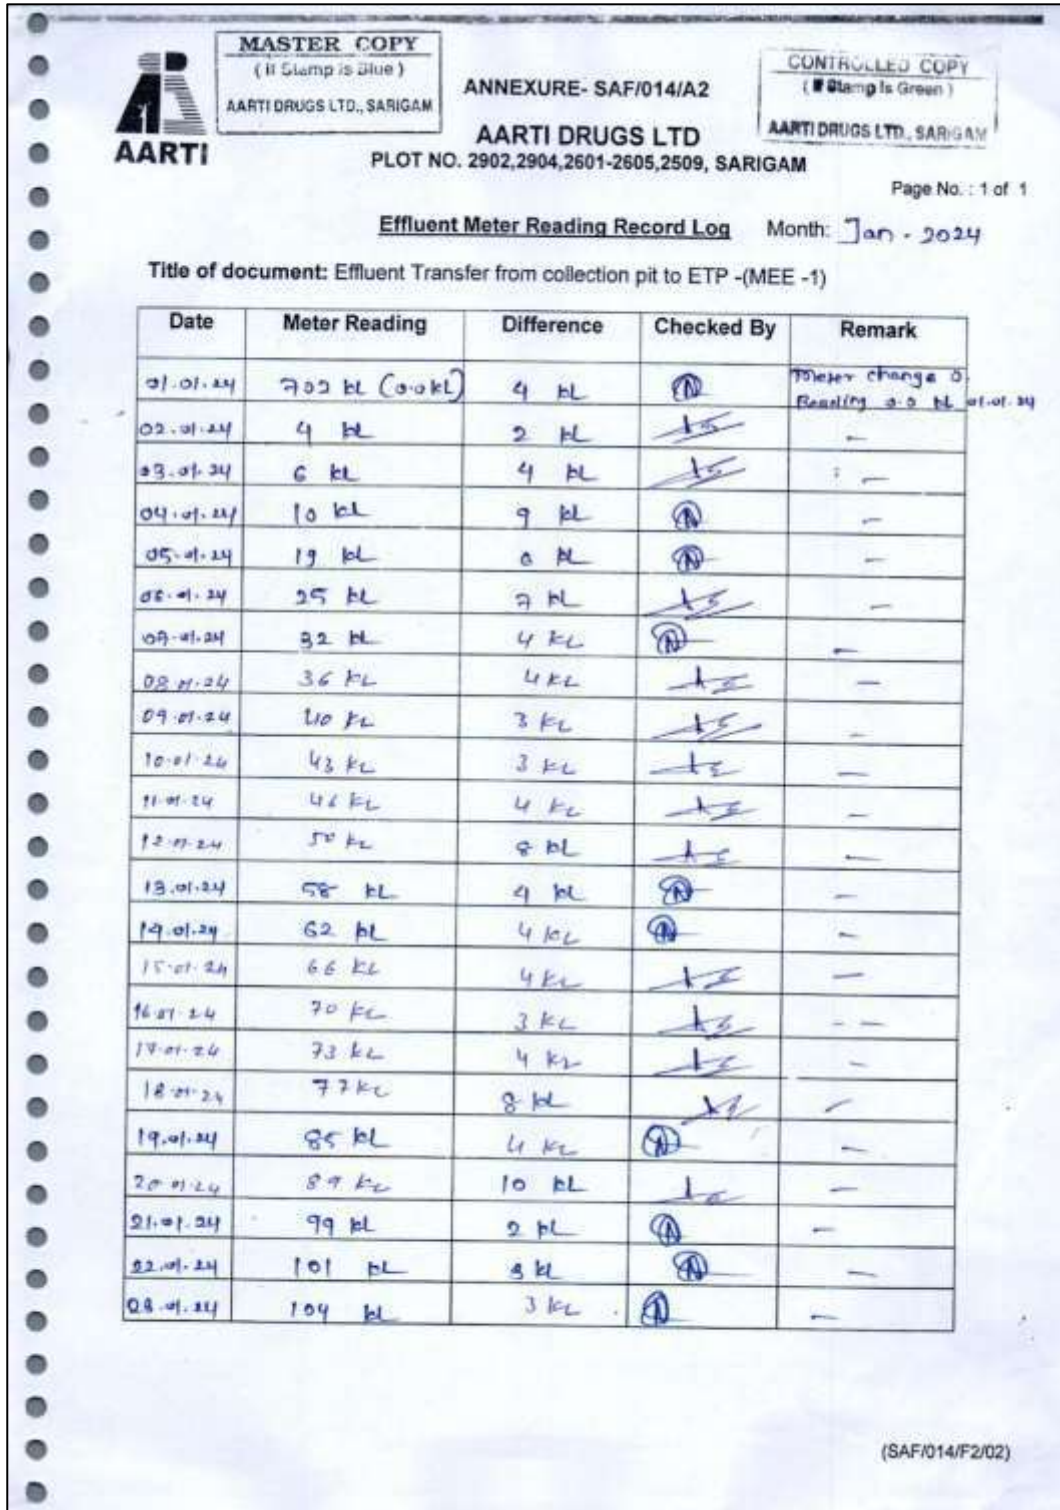 MASTER COPY
(If Stamp is Blue)
AARTI DRUGS LTD., SARIGAM
AARTI
ANNEXURE- SAF/014/A2
CONTROLLED COPY
(If Stamp Is Green)
AARTI DRUGS LTD., SARIGAM
AARTI DRUGS LTD
PLOT NO. 2902,2904,2601-2605,2509, SARIGAM
Page No. : 1 of 1
Effluent Meter Reading Record Log Month: Jan - 2024
Title of document: Effluent Transfer from collection pit to ETP -(MEE -1)
Date Meter Reading Difference Checked By Remark
01.01.24 702 KL (0.0 KL) 4 KL Meter change
Reading 0.0 KL 01.01.24
02.01.24 4 KL 2 KL -
03.01.24 6 KL 4 KL -
04.01.24 10 KL 9 KL -
05.01.24 19 KL KL -
06.01.24 25 KL 7 KL -
07.01.24 32 KL 4 KL -
08.01.24 36 KL 4 KL -
09.01.24 40 KL 3 KL -
10.01.24 43 KL 3 KL -
11.01.24 46 KL 4 KL -
12.01.24 50 KL 8 KL -
13.01.24 58 KL 4 KL -
14.01.24 62 KL 4 KL -
15.01.24 66 KL 4 KL -
16.01.24 70 KL 3 KL - -
17.01.24 73 KL 4 KL -
18.01.24 77 KL 8 KL -
19.01.24 85 KL 4 KL -
20.01.24 89 KL 10 KL -
21.01.24 99 KL 2 KL -
22.01.24 101 KL 3 KL -
23.01.24 104 KL 3 KL -
(SAF/014/F2/02)